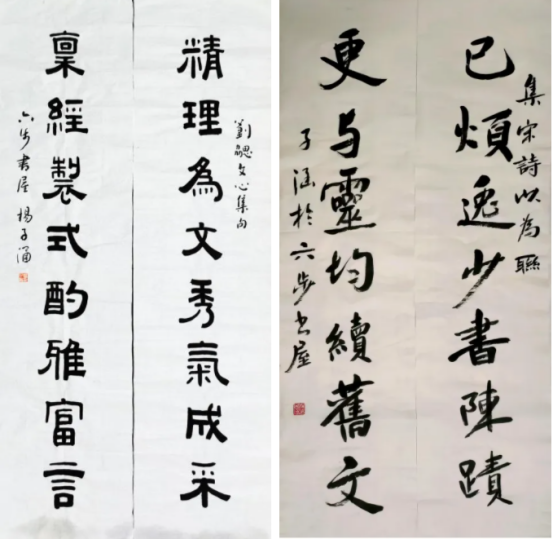 劉勰文心集句
精理為文秀氣成采
稟經製式酌雅富言
六步書屋 楊子涵
集宋詩以為聯
已煩逸少書陳蹟
更与靈均續舊文
子涵於六步书屋